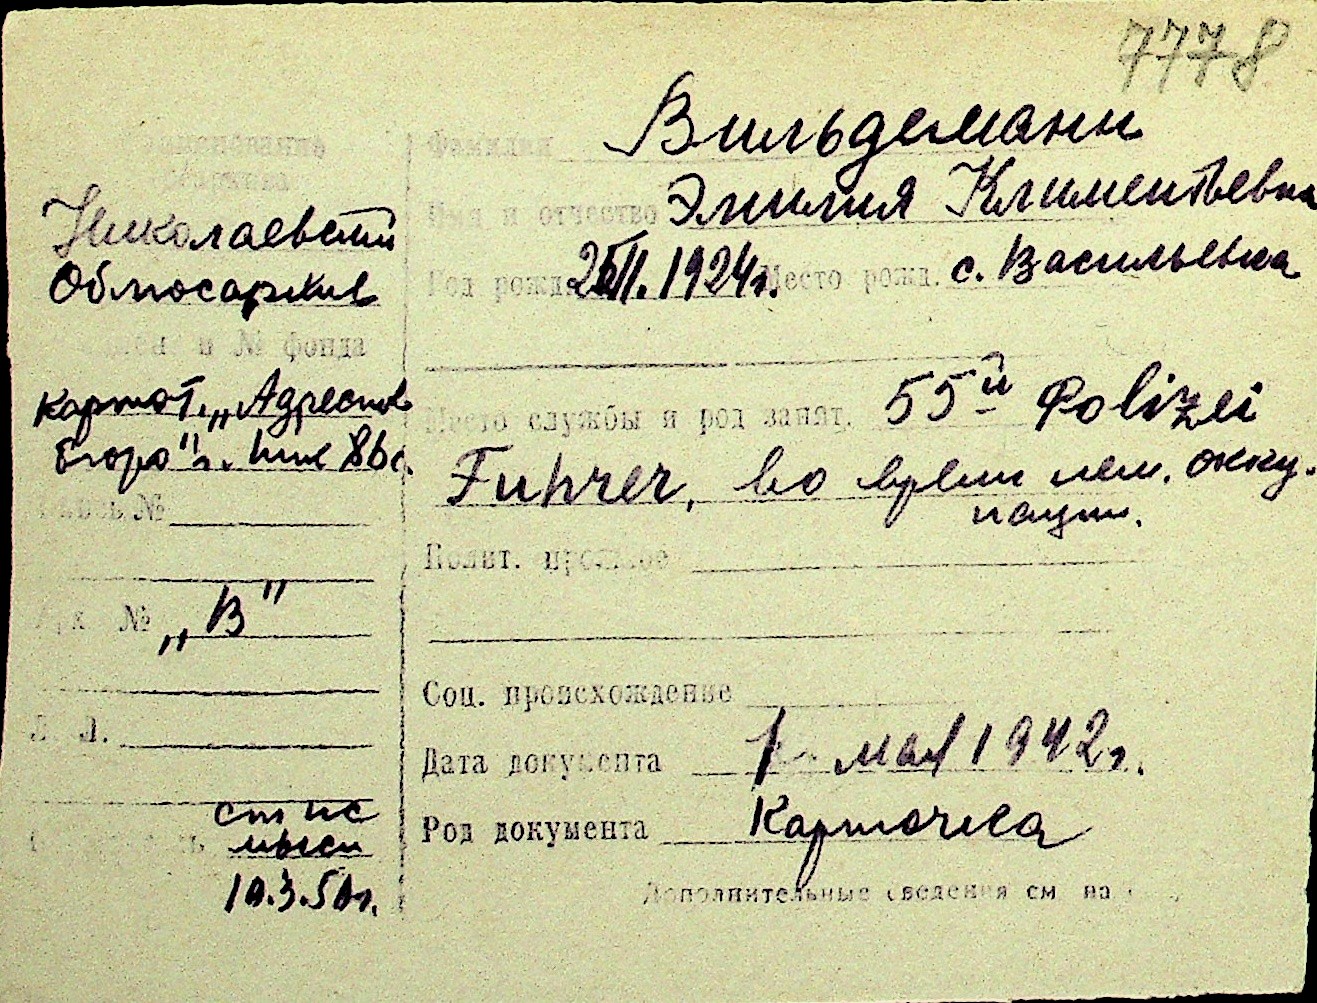 7778
Наименование
архива
Николаевский
Облгосархив
и № фонда
картот. „Адресное
бюро" г.
Опись №
Арх. № „В"
Л. Л.
10.3.50г.
Фамилия Вильдеманн
Имя и отчество Эмилия Климентьевна
Год рожд. 1924г. Место рожд. с. Васильевка
Место службы и род занят. 55й Polizei
Fuhrer, во время нем. окку-
пации.
Полит. прошлое
Соц. происхождение
Дата документа мая 1942г.
Род документа Карточка
Дополнительные сведения см на